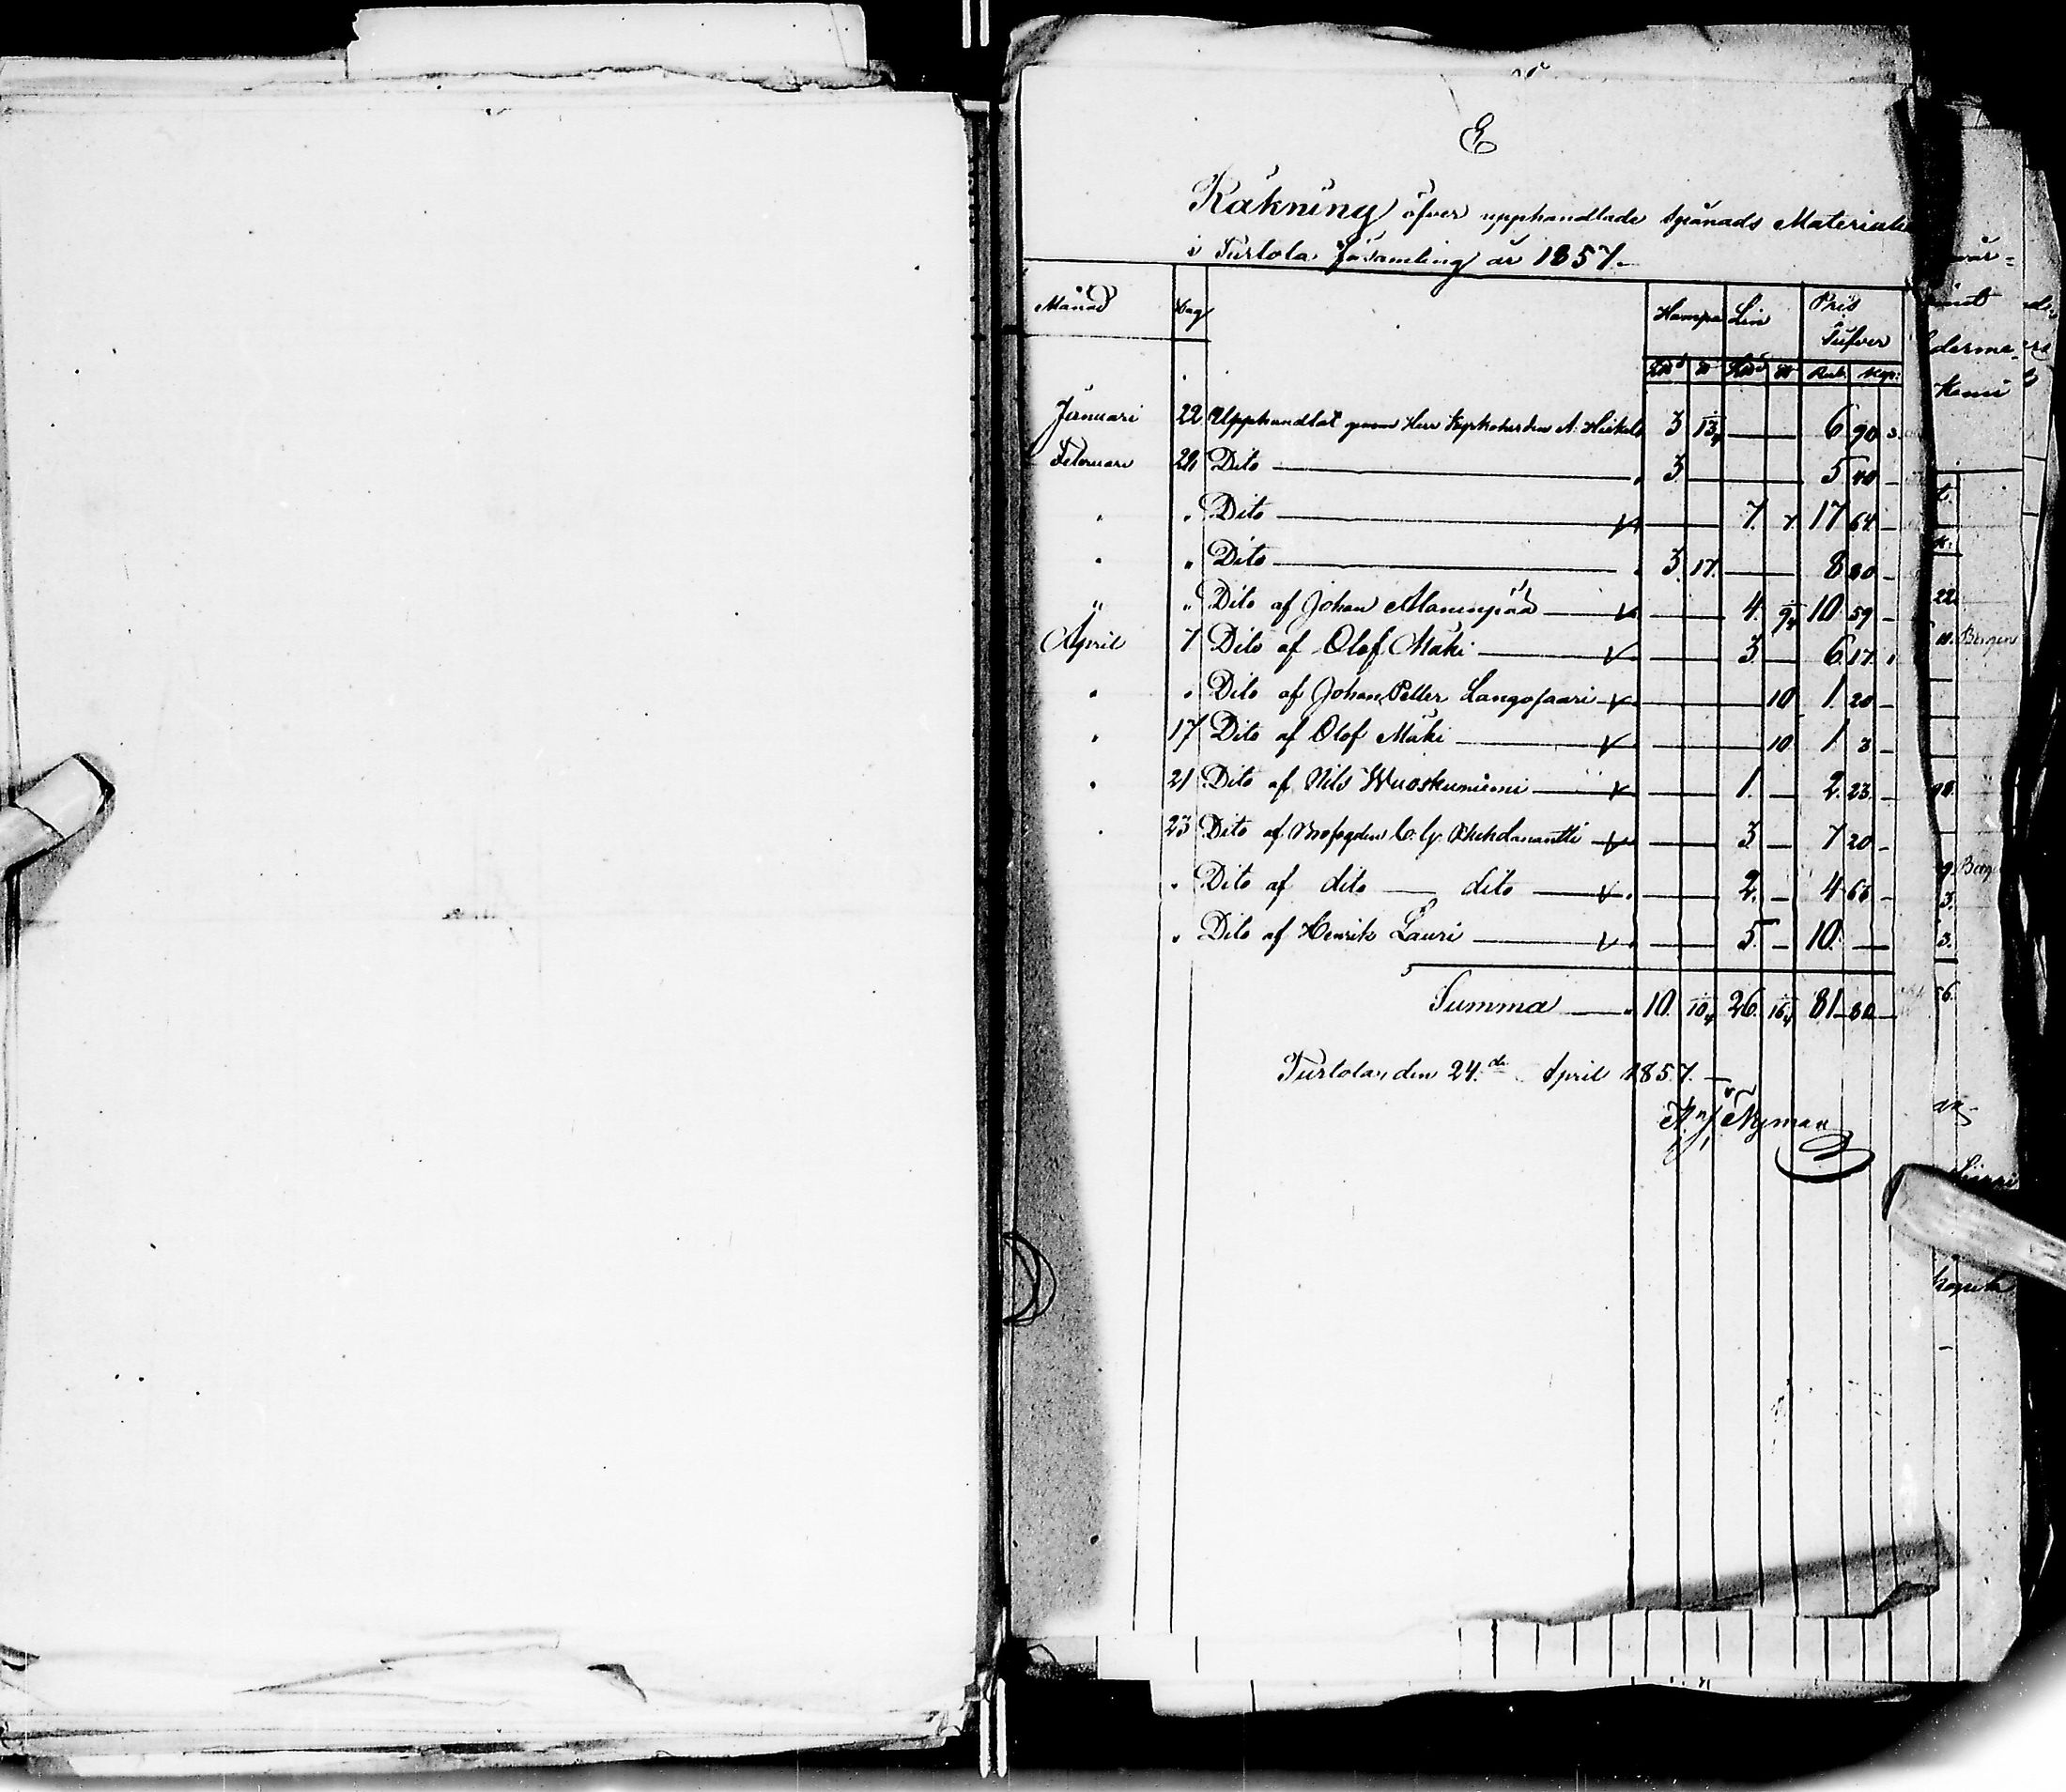 E
Räkning öfver upphandlade Spånads Materialie
i Turtola församling år 1857.
Månad Dag Hampa Lin Pris Silfver
L℔d ℔ L℔d ℔ Rub. Kop:
Januari 22 Upphandlat genom Herr Kyrkoherden A. Heikel 3 13 — 6 90
Februari 24 Dito — 3 — 5 40 —
" " Dito — 7. 7 17 64 —
" " Dito — 3. 17. — 8 80 —
" " Dito af Johan Alaruipää — 4. 10 59 —
April 7 Dito af Olof Mäki — 3 — 6 17
" " Dito af Johan Petter Langojaari — 10 1 20 —
" 17 Dito af Olof Mäki — 10 1 3 —
" 21 Dito af Nils Wuoskuniemi — 1. — 2. 23 —
" 23 Dito af C. G. — 3 — 7 20 —
" Dito af dito — dito — 2. — 4 66 —
" Dito af Henrik Lauri — 5. — 10. —
Summa — 10. 10 26. 16 81 —
Turtola, den 24.de April 1857. —
Nyman